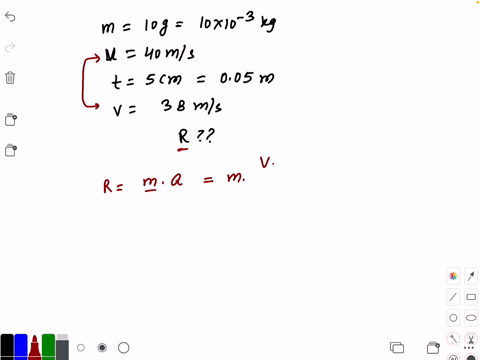 m = 10g = 10×10⁻³ kg
u = 40 m/s
t = 5cm = 0.05 m
v = 38 m/s
R ??
R = m . a = m. V.